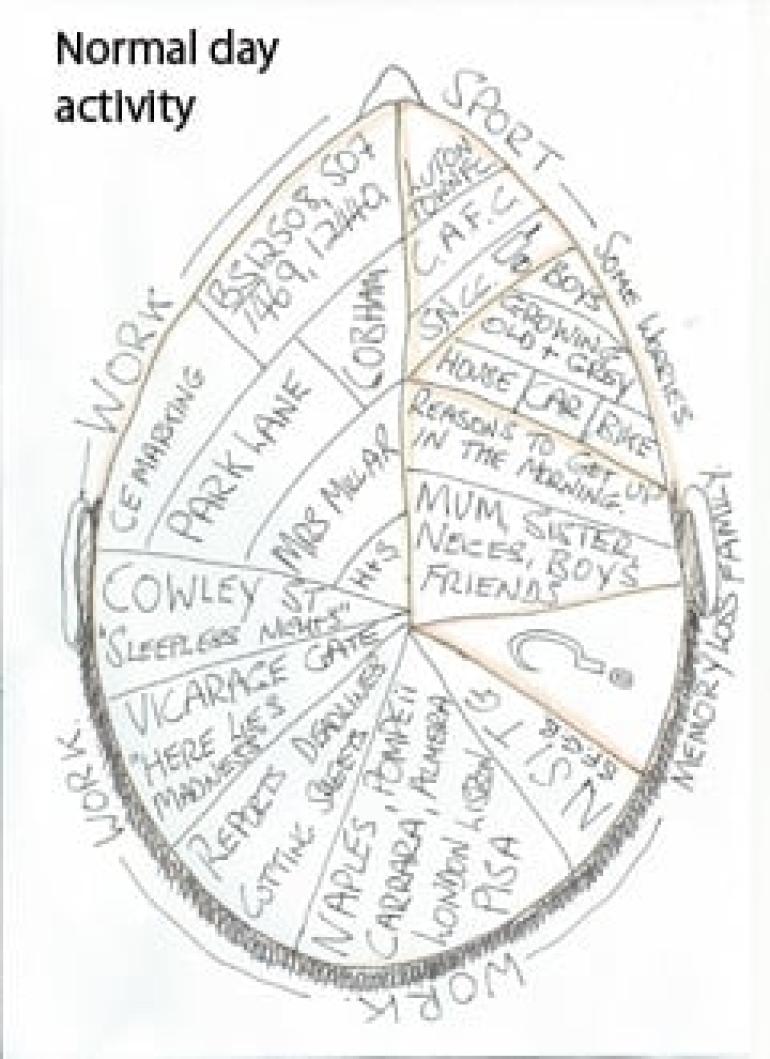 Normal day
activity
SPORT
SOME WORRIES
FAMILY
MEMORY LOSS
WORK
WORK
WORK
BS12508, 507
1469, 12440
LUTON
TOWN FC
C.A.F.C
SNCC.
BOYS
GROWING
OLD + GREY
HOUSE
CAR
BIKE
REASONS TO GET UP
IN THE MORNING.
MUM, SISTER,
NEICES, BOYS
FRIENDS
?
COBHAM
CE MARKING
PARK LANE
MRS MILLAR
H+S
COWLEY ST
"SLEEPLESS NIGHTS"
VICARAGE GATE
"HERE LIES
MADNESS"
REPORTS DEADLINES
CUTTING SHEETS
NAPLES, POMPEII
CARRARA, ALMERIA
LONDON LISBON
PISA